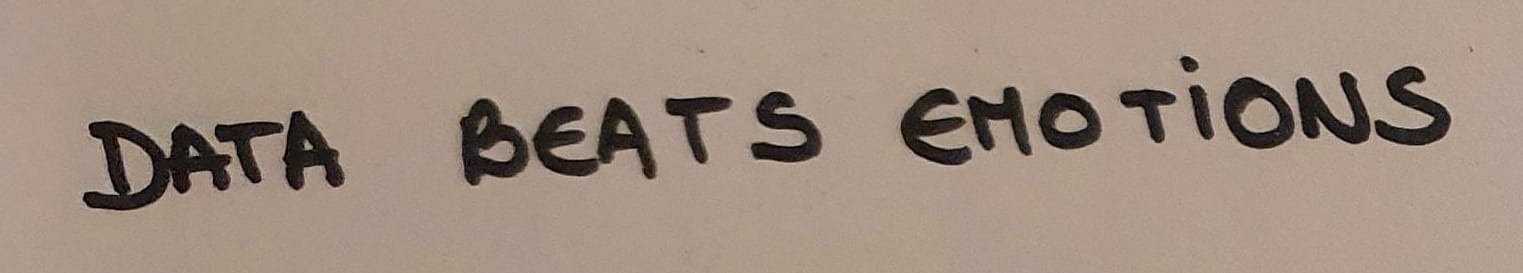 DATA BEATS EMOTIONS